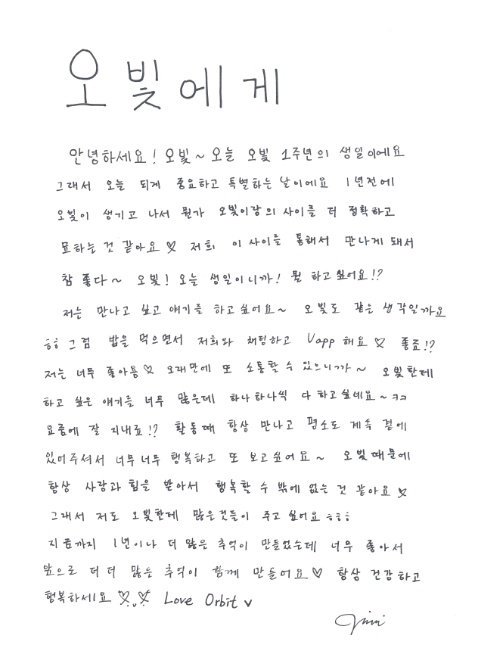 오빛에게
안녕하세요! 오빛~ 오늘 오빛 1주년의 생일이에요
그래서 오늘 되게 중요하고 특별하는 날이에요 1년전에
오빛이 생기고 나서 뭔가 오빛이랑의 사이를 더 정확하고
묘하는 것 같아요♡ 저희 이 사이를 통해서 만나게 돼서
참 좋다~ 오빛! 오늘 생일이니까! 뭘 하고싶어요!?
저는 만나고 싶고 얘기를 하고싶어요~ 오빛도 같은 생각일까요
ㅎㅎ 그럼 밥을 먹으면서 저희와 채팅하고 Vapp 해요♡ 좋죠!?
저는 너무 좋아용♡ 오래만에 또 소통할 수 있으니까~ 오빛한테
하고 싶은 얘기를 너무 많은데 하나하나씩 다 하고싶네요~ㅋㅋ
요즘에 잘 지내죠!? 활동때 항상 만나고 평소도 계속 곁에
있어주셔서 너무너무 행복하고 또 보고싶어요~ 오빛때문에
항상 사랑과 힘을 받아서 행복할 수 밖에 없는 것 같아요♡
그래서 저도 오빛한테 많은것들이 주고 싶어요 ㅎㅎㅎ
지금까지 1년이나 더 많은 추억이 만들었는데 너무 좋아서
앞으로 더 더 많은 추억이 함께 만들어요♡ 항상 건강하고
행복하세요♡♡ Love Orbit v